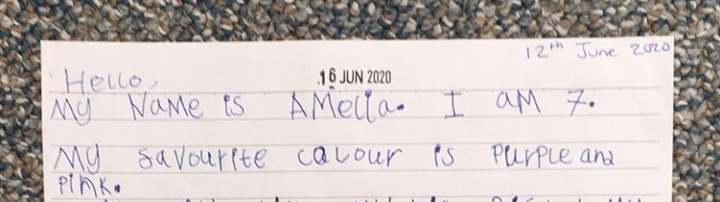 12th June 2020
16 JUN 2020
Hello,
My Name is AMella. I am 7.
My favourite colour is purple and
pink.